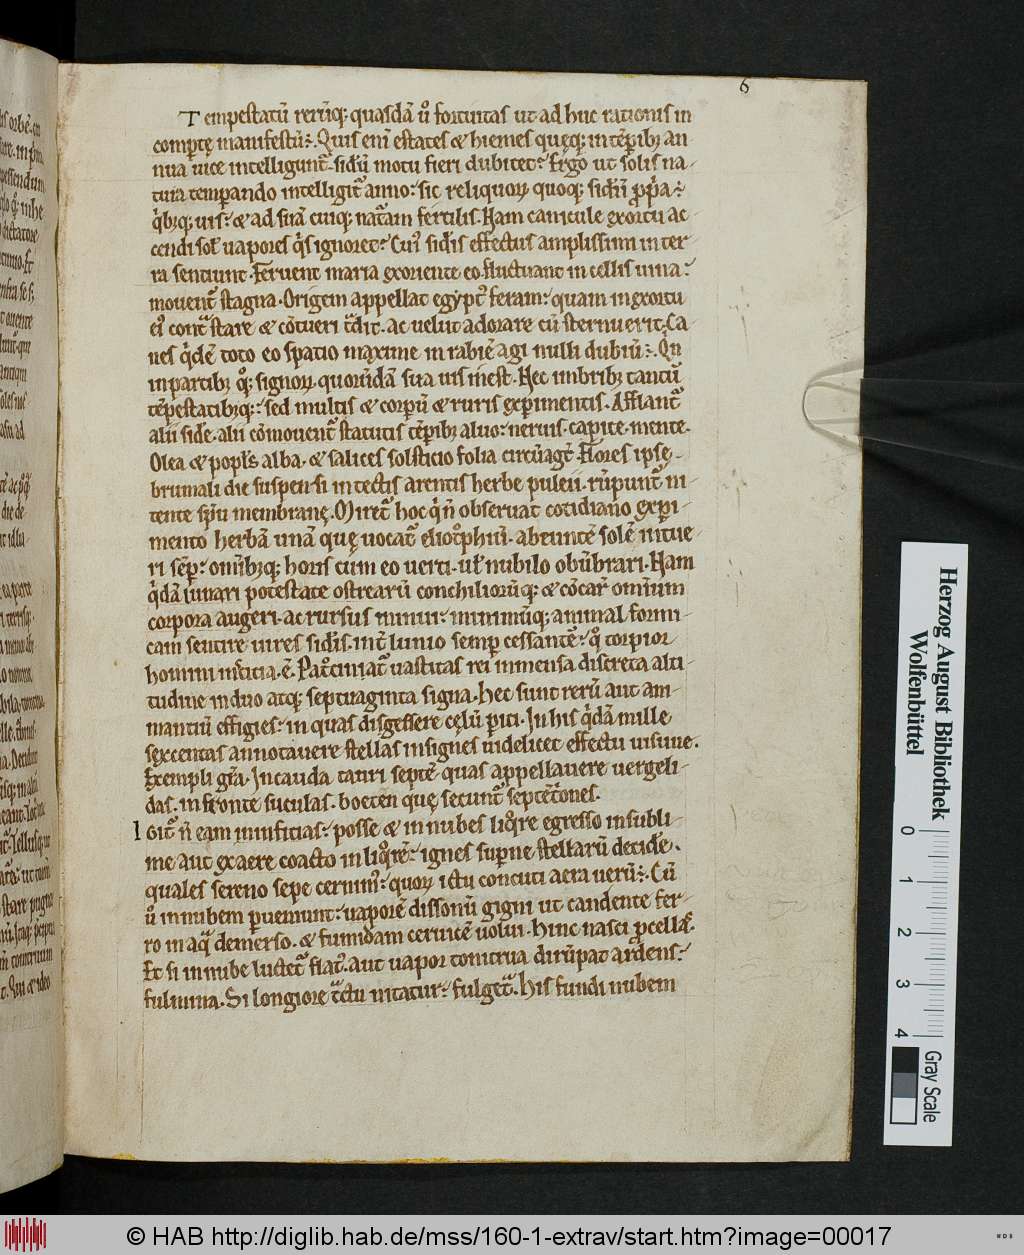 6
Tempestatū rerūq; quasdā ū fortuitas ut ad huc rationis in
compertę manifestū. Quis enī estates & hiemes quęq; in tēporibꝫ an
nua uice intelligunt. sidū motu fieri dubitet? Ergo ut solis na-
tura temperando intelligit̄ anno: sic reliquoꝝ quoq; sideū ppa
qibꝫq; uis: & ad suā cuiq; natam fertilis. Nam canicule exortu ac
cendi sol uapores qis ignoret? Cui sideris effectus amplissimi in ter
ra sentiunt. Feruent maria exoriente eo. fluctuant in cellis uina:
mouent̄ stagna. Origem appellat egypt feram: quam in exortu
ei cont stare & cōtueri tdit. ac uelut adorare cū sternuerit. Ca
nes qidē toto eo spatio maxime in rabiē agi nulli dubiū. Qn
in partibꝫ qꝫ signoꝝ quorūdā sua uis inest. Nec imbribꝫ tantū
tēpestatibꝫq;: sed multis & corpū & ruris experimentis. Afflant̄
alii sidere. alii cōmouent̄ statutis tēporibꝫ aluo: neruis. capite. mente.
Olea & popls alba. & salices solsticio folia circūagt̄. Flores ipse
brumali die suspensi in tectis arentis herbe puleii. rūpunt̄ in-
tente spū membranę. Miret̄ hoc qi ñ obseruat cotidiano experi-
mento herbā unā quę uocat̄ eliotphiū. abeuntē solē intue-
ri sēp. omībꝫq; horis cum eo uerti. ul nubilo obūbrari. Nam
qidā lunari potestate ostrearū conchiliorūq; & cōcar omnium
corpora augeri. ac rursus minui: minimūq; animal formi-
cam sentire uires sideris. int lunio semp cessantē. qꝫ torpior
homini inscitia. ē. Patciniat̄ uastitas rei immensa discreta alti-
tudine in duo atq; septuaginta signa. Hec sunt rerū aut am-
mantiū effigies: in quas disgessere cęlū piti. In his qidā mille
sexcentas annotauere stellas insignes uidelicet effectu uisuue.
Exempli gra. In cauda tauri septē quas appellauere uergeli-
das. in fronte suculas. booten quę secunt̄ septētiones.
lGit ñ eam inuficias: posse & in nubes liqre egresso in subli-
me aut ex aere coacto in liqrē: ignes supne stellarū decidē.
quales sereno sepe cernim: quoꝝ ictu concuti aera uerū. Cū
ū in nubem pueniunt: uaporē dissonū gigni ut candente fer-
ro in aqa demerso. & fumidam ceruicē uolui. Hinc nasci pcellas.
Et si in nube luctet̄ flat. aut uapor tonitrua dirūpat ardens:
fulmina. Si longiore tctu nitatur: fulget. His fundi nubem
Herzog August Bibliothek
Wolfenbüttel
0 1 2 3 4
Gray Scale
© HAB http://diglib.hab.de/mss/160-1-extrav/start.htm?image=00017